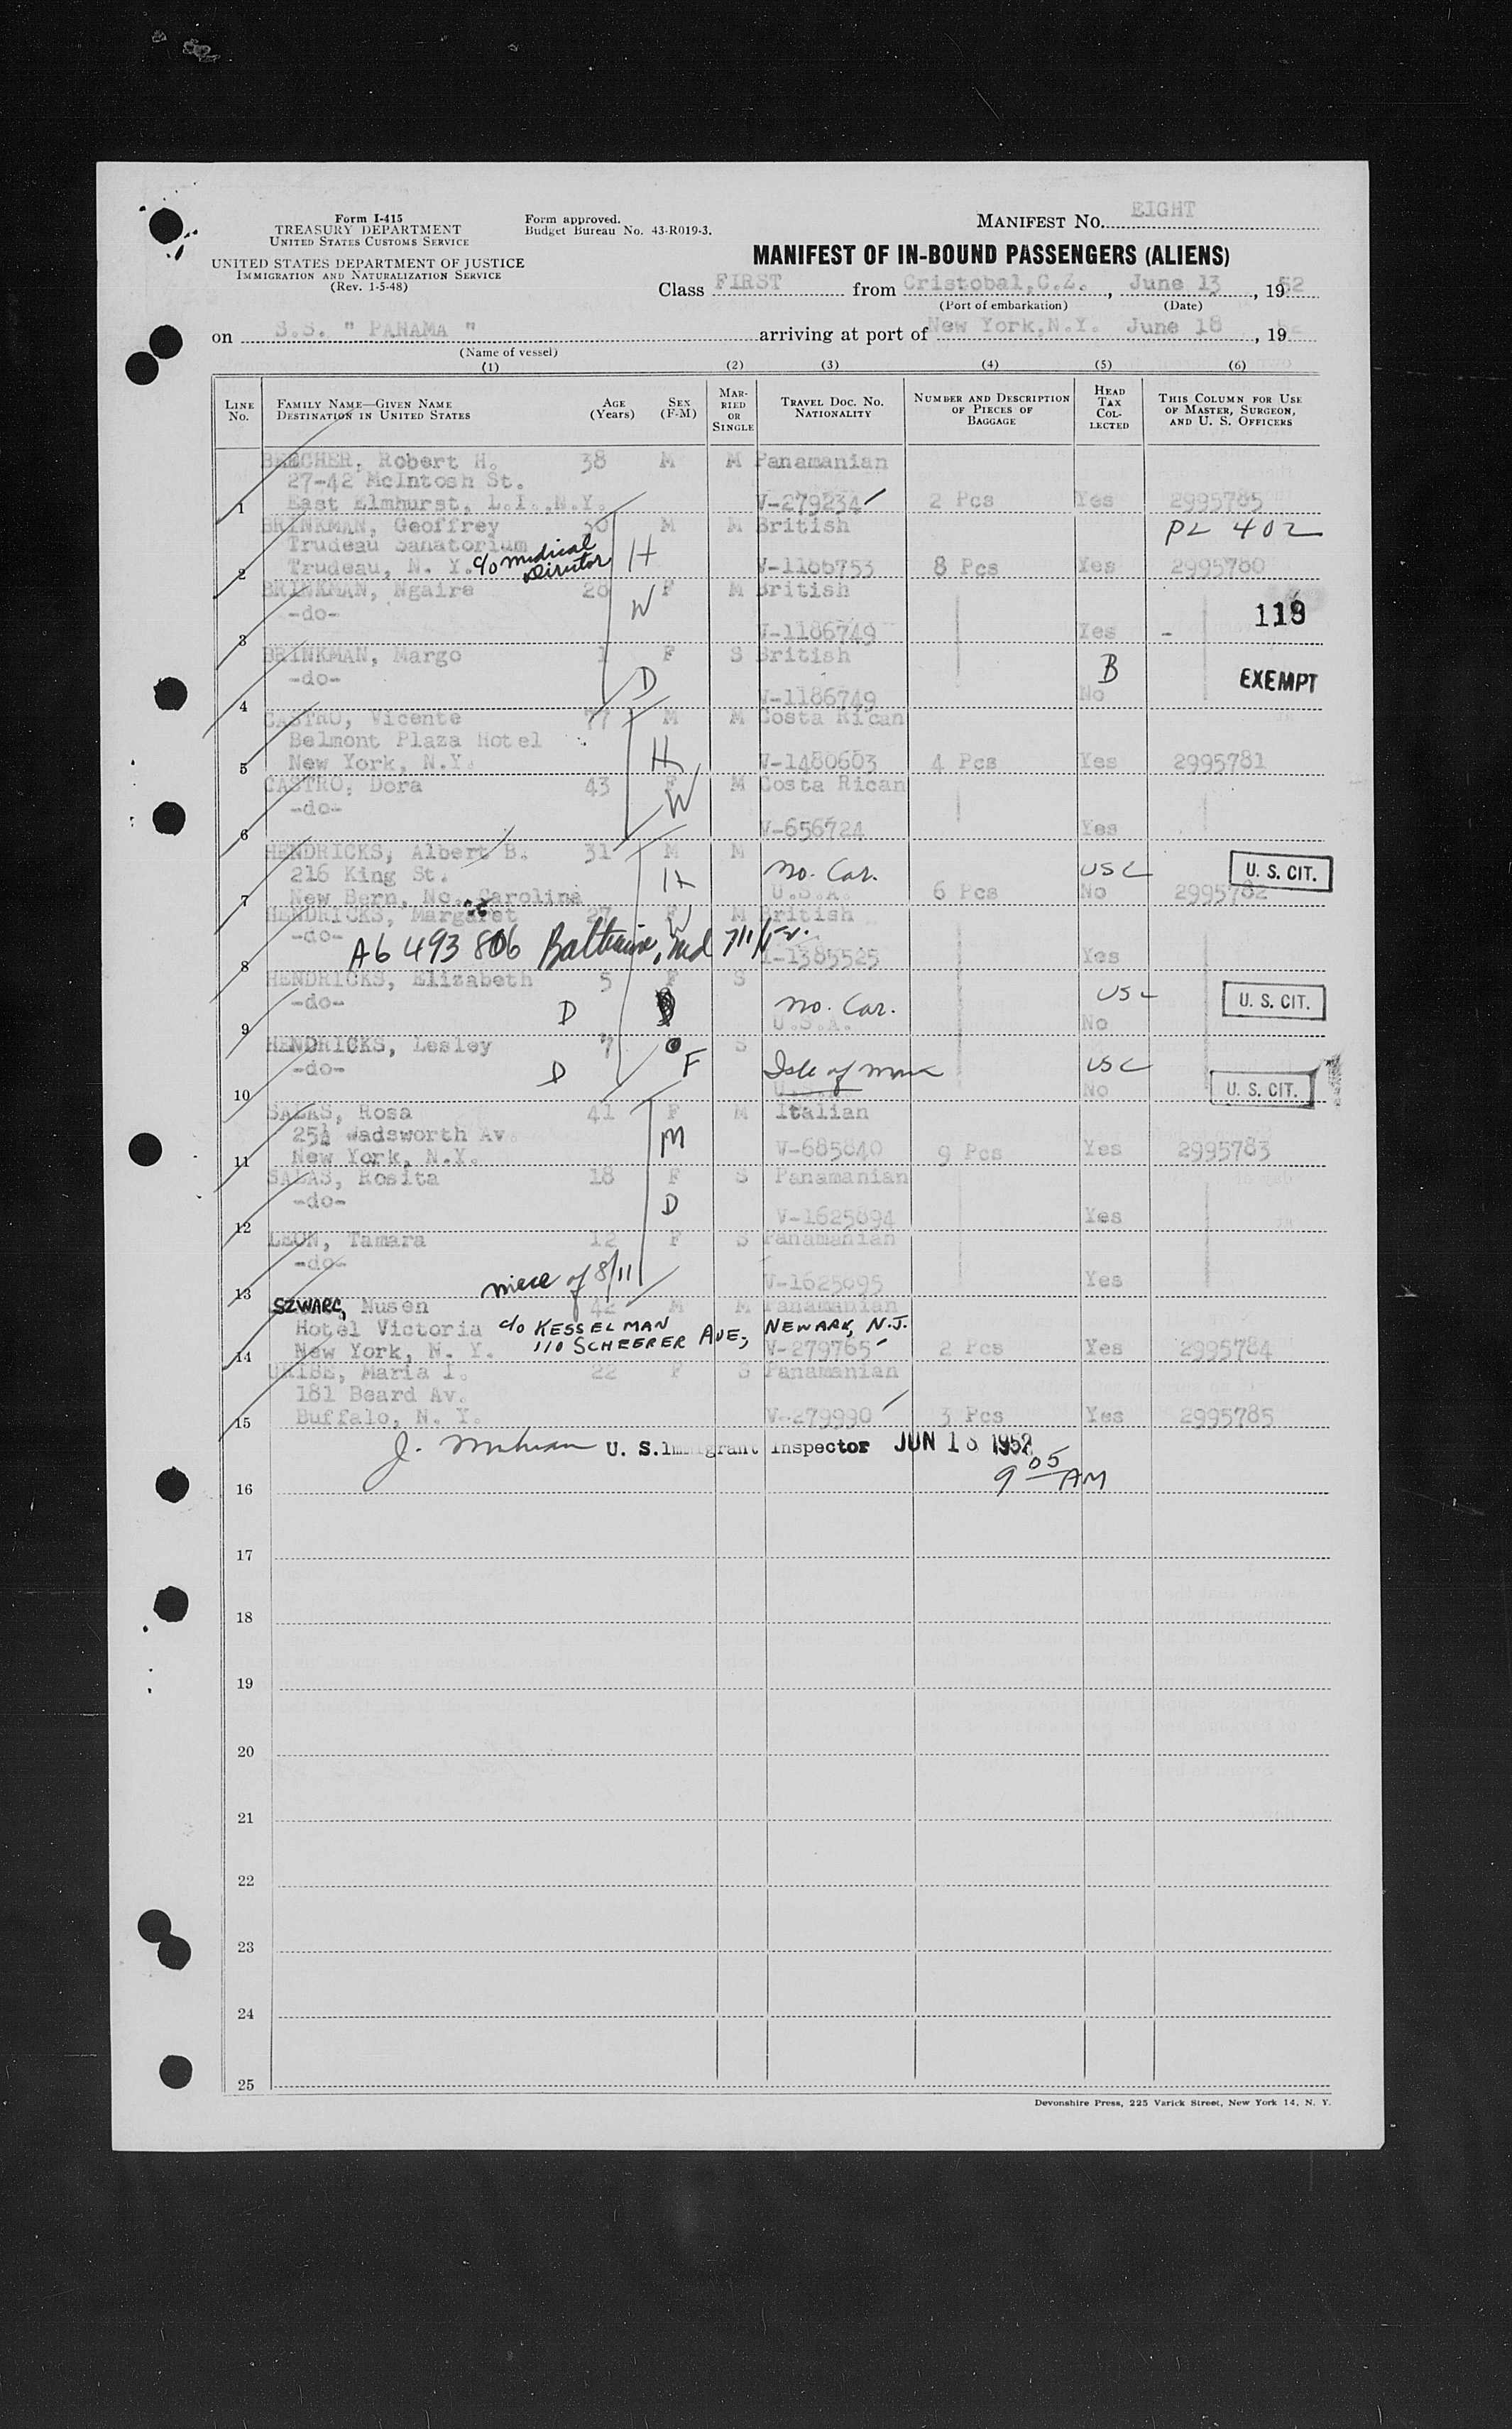 Form I-415
TREASURY DEPARTMENT
UNITED STATES CUSTOMS SERVICE
UNITED STATES DEPARTMENT OF JUSTICE
IMMIGRATION AND NATURALIZATION SERVICE
(Rev. 1-5-48)
Form approved.
Budget Bureau No. 43-R019-3.
MANIFEST NO. EIGHT
MANIFEST OF IN-BOUND PASSENGERS (ALIENS)
Class FIRST from Cristobal,C.Z., June 13, 1952
(Port of embarkation) (Date)
on S.S. " PANAMA " arriving at port of New York,N.Y. June 18, 1952
(Name of vessel)
(1) (2) (3) (4) (5) (6)
LINE NO. FAMILY NAME—GIVEN NAME DESTINATION IN UNITED STATES AGE (Years) SEX (F-M) MARRIED OR SINGLE TRAVEL DOC. NO. NATIONALITY NUMBER AND DESCRIPTION OF PIECES OF BAGGAGE HEAD TAX COLLECTED THIS COLUMN FOR USE OF MASTER, SURGEON, AND U. S. OFFICERS
BEECHER, Robert H. 38 M M Panamanian
27-42 McIntosh St.
1 East Elmhurst, L.I.,N.Y. V-279234 2 Pcs Yes 2995785
BRINKMAN, Geoffrey 30 M M British PL 402
Trudeau Sanatorium c/o Medical Director H
2 Trudeau, N. Y. V-1186753 8 Pcs Yes 2995780
BRINKMAN, Ngaire 26 F M British
-do- W 118
3 V-1186749 Yes -
BRINKMAN, Margo 1 F S British
-do- D B EXEMPT
4 V-1186749 No
CASTRO, Vicente 77 M M Costa Rican
Belmont Plaza Hotel H
5 New York, N.Y. V-1480603 4 Pcs Yes 2995781
CASTRO, Dora 43 F M Costa Rican
-do- W
6 V-656724 Yes
HENDRICKS, Albert B. 31 M M
216 King St. H No. Car. USC U. S. CIT.
7 New Bern, No. Carolina U.S.A. 6 Pcs No 2995782
HENDRICKS, Margaret 27 F M British
-do- W
A6 493 806 Baltimore, Md
8 I-1385525 Yes
HENDRICKS, Elizabeth 5 F S
-do- D No. Car. USC U. S. CIT.
9 U.S.A. No
HENDRICKS, Lesley 7 S
-do- D F Isle of Man USC U. S. CIT.
10 U.S.A. No
SALAS, Rosa 41 F M Italian
25½ Wadsworth Av. M
11 New York, N.Y. V-685840 9 Pcs Yes 2995783
SALAS, Rosita 18 F S Panamanian
-do- D
12 V-1625894 Yes
LEON, Tamara 12 F S Panamanian
-do- niece of 8/11
13 V-1625895 Yes
SZWARC, Nusen 42 M M Panamanian
Hotel Victoria c/o KESSELMAN NEWARK, N.J.
110 SCHEERER AVE,
14 New York, N. Y. V-279765 2 Pcs Yes 2995784
URIBE, Maria I. 22 F S Panamanian
181 Beard Av.
15 Buffalo, N. Y. V-279990 3 Pcs Yes 2995785
J. U. S. Immigrant Inspector JUN 18 1952
9 05 AM
16
17
18
19
20
21
22
23
24
25
Devonshire Press, 225 Varick Street, New York 14, N. Y.